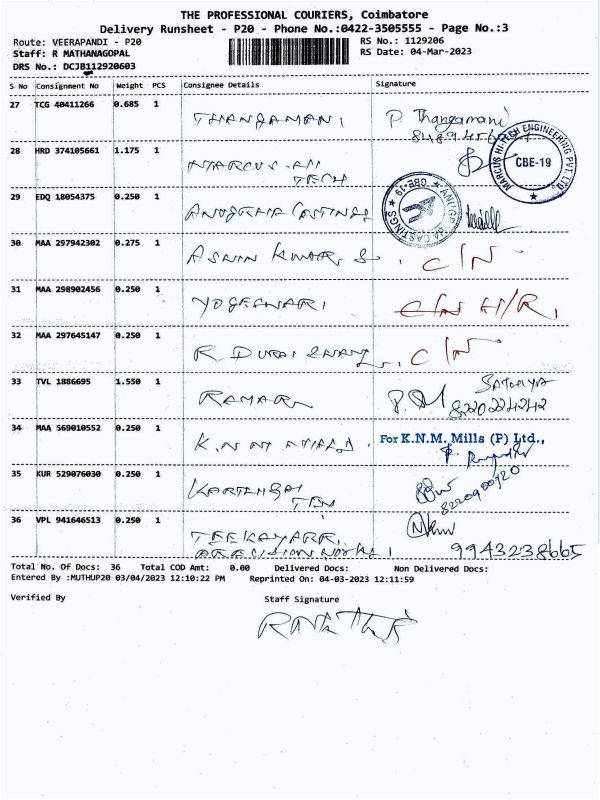 THE PROFESSIONAL COURIERS, Coimbatore
Delivery Runsheet - P20 - Phone No.:0422-3505555 - Page No.:3
Route: VEERAPANDI - P20 RS No.: 1129206
Staff: R MATHANAGOPAL RS Date: 04-Mar-2023
DRS No.: DCJB112920603
S No Consignment No Weight PCS Consignee Details Signature
27 TCG 40411266 0.685 1 THANGAMANI P. Thangamani
28 HRD 374105661 1.175 1 MARCUS HI TECH
MARCUS HI-TECH ENGINEERING PVT. LTD. CBE-19
29 EDQ 18054375 0.250 1 ANUGRAHA CASTINGS
CBE-19
30 MAA 297942302 0.275 1 ASWIN KUMAR S. C/N
31 MAA 298902456 0.250 1 YOGESWARI C/N H/R,
32 MAA 297645147 0.250 1 R. DURAI C/N
33 TVL 1886695 1.550 1 RAMAR SATHIYA
8220224242
34 MAA 569010552 0.250 1 K.N.M For K.N.M. Mills (P) Ltd.,
35 KUR 529076030 0.250 1
8220900920
36 VPL 941646513 0.250 1 TEEKAYARR
PRECISION WORKS 9943238665
Total No. OF Docs: 36 Total COD Amt: 0.00 Delivered Docs: Non Delivered Docs:
Entered By :MUTHUP20 03/04/2023 12:10:22 PM Reprinted On: 04-03-2023 12:11:59
Verified By Staff Signature